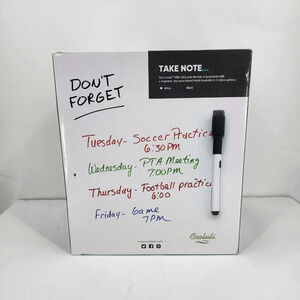 TAKE NOTE...
DON'T
FORGET
Tuesday- Soccer Practice
6:30PM
Wednesday- PTA Meeting
7:00PM
Thursday- Football practice
6:00
Friday- Game
7PM